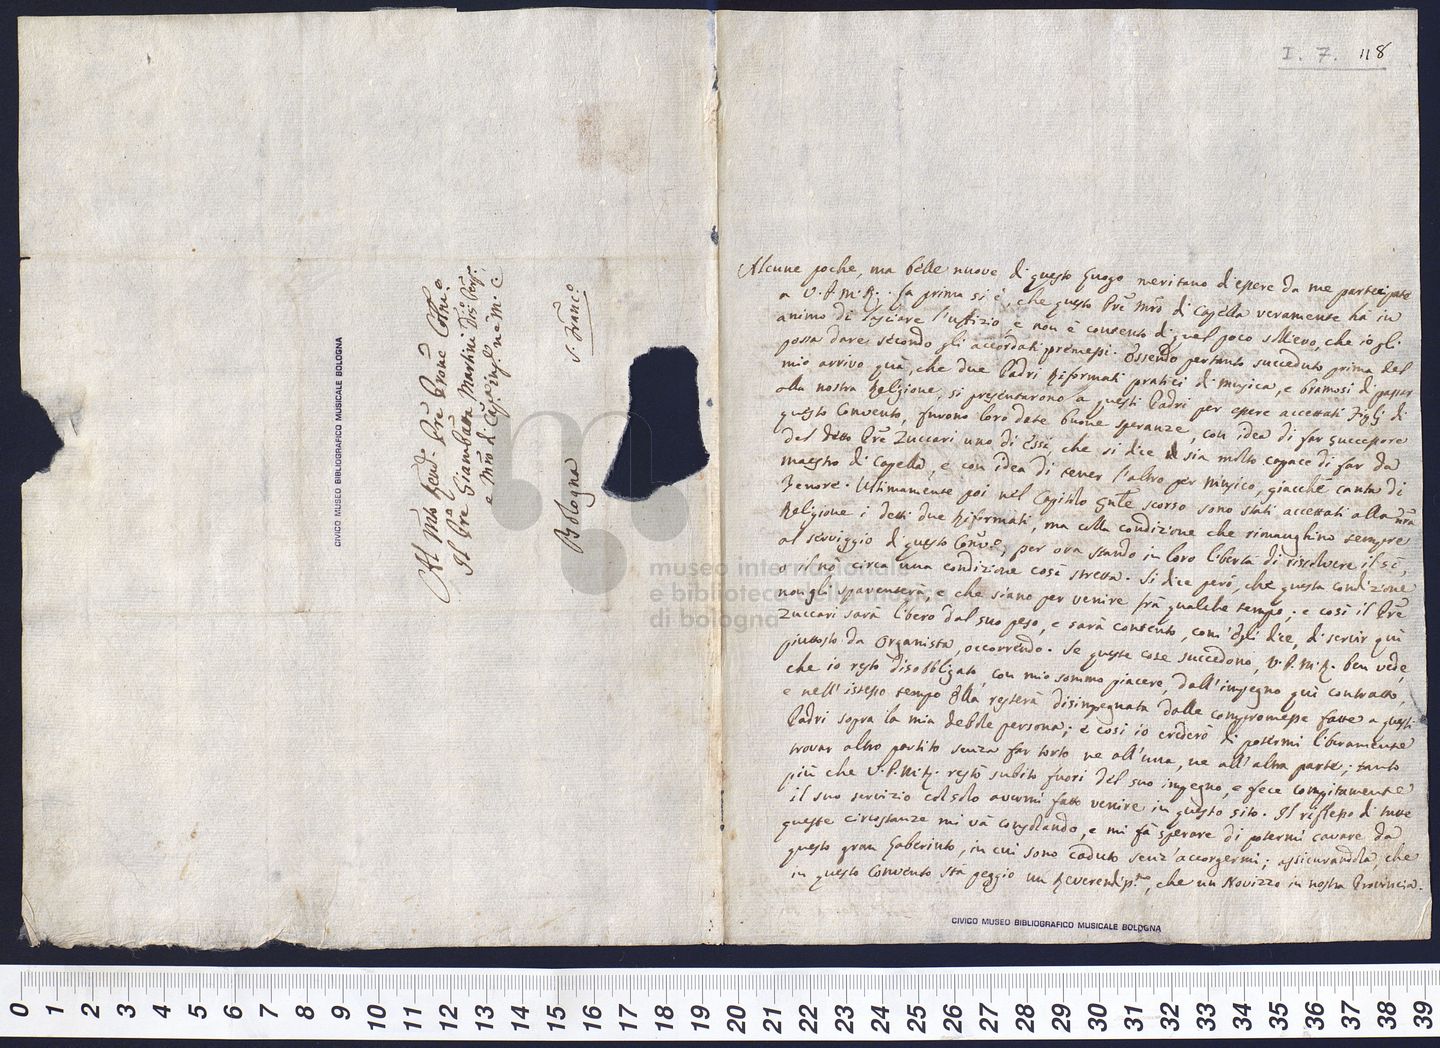 I. 7. 118
Al Mto Revdo. Pre Prone Colmo
Il Pre Giambatta Martini
e Mro di Cap
S. Franco
Bologna
CIVICO MUSEO BIBLIOGRAFICO MUSICALE BOLOGNA
Alcune poche, ma belle nuove di questo luogo meritano d'essere da me partecipate
a V. P. M. R. La prima si è, che questo Pre Mro di Capella veramente hà in
animo di lasciare l'uffizio, e non è contento di quel poco sollievo, che io gli
possa dare secondo gli accordati premessi. Essendo pertanto succeduto prima del
mio arrivo quà, che due Padri Riformati pratici di musica, e bramosi di passar
alla nostra Religione, si presentarono a questi Padri per essere accettati Figli di
questo Convento, furono loro date buone speranze, con idea di far successore
del detto Pre Zuccari uno di Essi, che si dice sia molto capace di far da
maestro di Capella, e con idea di tener l'altro per Musico, giacchè canta di
Tenore. Ultimamente poi nel Capitolo Gnle scorso sono stati accettati alla nra
Religione i detti due Riformati, ma colla condizione che rimanghino sempre
al serviggio di questo Convo, per ora stando in loro libertà di risolvere il sì,
o il nò circa una condizione così stretta. Si dice però, che questa condizione
non gli spaventerà, e che siano per venire frà qualche tempo; e così il Pre
Zuccari sarà libero dal suo peso, e sarà contento, com'egli dice, di servir quì
piuttosto da Organista, occorrendo. Se queste cose succedono, V. P. M. R. ben vede,
che io resto disobbligato, con mio sommo piacere, dall'impegno quì contratto,
e nell'istesso tempo Ella resterà disimpegnata dalle compromesse fatte a questi
Padri sopra la mia debole persona; e così io crederò di potermi liberamente
trovar altro partito senza far torto ne all'una, ne all'altra parte; tanto
più che V. P. M. R. restò subito fuori del suo impegno, e fece compitamente
il suo servizio col solo avermi fatto venire in questo sito. Il riflesso di tutte
queste circostanze mi và consolando, e mi fà sperare di potermi cavare da
questo gran Laberinto, in cui sono caduto senz'accorgermi; assicurandola, che
in questo Convento stà peggio un Reverendissmo, che un Novizzo in nostra Provincia.
CIVICO MUSEO BIBLIOGRAFICO MUSICALE BOLOGNA
museo internazionale
e biblioteca della musica
di bologna
0 1 2 3 4 5 6 7 8 9 10 11 12 13 14 15 16 17 18 19 20 21 22 23 24 25 26 27 28 29 30 31 32 33 34 35 36 37 38 39